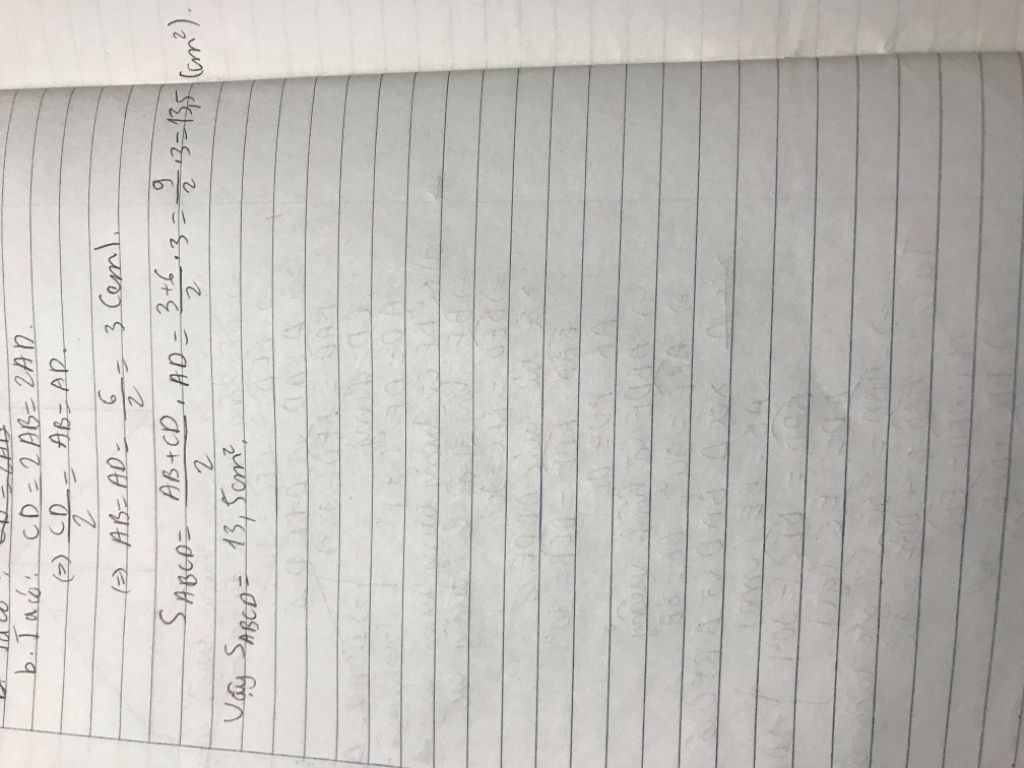 b. Ta có: CD = 2AB = 2AD.
(=) CD/2 = AB = AD.
(=) AB = AD = 6/2 = 3 (cm).
S_ABCD = (AB+CD)/2 . AD = (3+6)/2 . 3 = 9/2 . 3 = 13,5 (cm²).
Vậy S_ABCD = 13,5cm².